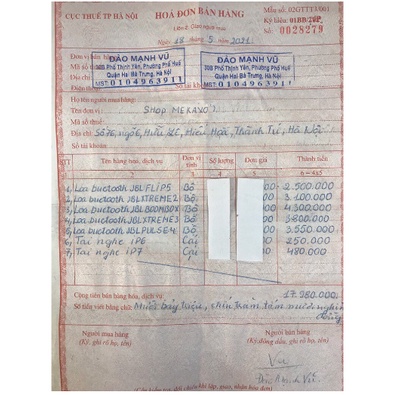 CỤC THUẾ TP HÀ NỘI
HOÁ ĐƠN BÁN HÀNG
Mẫu số: 02GTTT3/001
Ký hiệu: 01BB/20P
Số: 0028279
Liên 2: Giao người mua
Ngày 18 tháng 5 năm 2021
Đơn vị bán
ĐÀO MẠNH VŨ
30B Phố Thịnh Yên, Phường Phố Huế
Quận Hai Bà Trưng, Hà Nội
MST: 0104963911
ĐÀO MẠNH VŨ
30B Phố Thịnh Yên, Phường Phố Huế
Quận Hai Bà Trưng, Hà Nội
MST: 0104963911
Mã số
Địa chỉ
Điện
Họ tên người mua hàng
Tên đơn vị SHOP MEKAXO
Mã số thuế
Địa chỉ Hữu Hoà, Thanh Trì, Hà Nội
Số tài khoản
STT Tên hàng hoá, dịch vụ Đơn vị tính Số lượng Đơn giá Thành tiền
1 2 3 4 5 6=4x5
1, Loa buetooth JBL FLIP5 Bộ 00 2.500.000
2, Loa buetooth JBL XTREME2 Bộ 3.100.000
3, Loa buetooth JBL BOOMBOX Bộ 4.300.000
4, Loa buetooth JBL XTREME3 Bộ 3.800.000
5, Loa buetooth JBL PULSE4 Bộ 3.550.000
6, Tai nghe iP6 Cái 250.000
7, Tai nghe iP7 Cái 480.000
Cộng tiền bán hàng hoá, dịch vụ: 17.980.000
Số tiền viết bằng chữ: Mười bảy triệu, chín trăm tám mươi nghìn đồng
Người mua hàng
(Ký, ghi rõ họ, tên)
Người bán hàng
(Ký, đóng dấu, ghi rõ họ, tên)
Vũ
Đào Mạnh Vũ
(Cần kiểm tra, đối chiếu khi lập, giao, nhận hoá đơn)